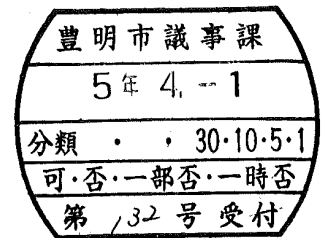 豊明市議事課
5年 4.-1
分類 ・ ・ 30・10・5・1
可・否・一部否・一時否
第 132 号 受付